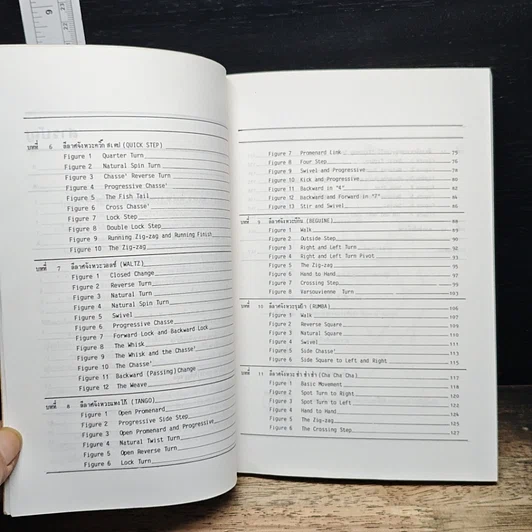 6
บทที่ 6 ลีลาศจังหวะควิ๊ก สเตป (QUICK STEP)
Figure 1 Quarter Turn
Figure 2 Natural Spin Turn
Figure 3 Chasse' Reverse Turn
Figure 4 Progressive Chasse'
Figure 5 The Fish Tail
Figure 6 Cross Chasse'
Figure 7 Lock Step
Figure 8 Double Lock Step
Figure 9 Running Zig-zag and Running Finish
Figure 10 The Zig-zag
บทที่ 7 ลีลาศจังหวะวอลซ์ (WALTZ)
Figure 1 Closed Change
Figure 2 Reverse Turn
Figure 3 Natural Turn
Figure 4 Natural Spin Turn
Figure 5 Swivel
Figure 6 Progressive Chasse'
Figure 7 Forward Lock and Backward Lock
Figure 8 The Whisk
Figure 9 The Whisk and the Chasse'
Figure 10 The Chasse'
Figure 11 Backward (Passing) Change
Figure 12 The Weave
บทที่ 8 ลีลาศจังหวะแทงโก้ (TANGO)
Figure 1 Open Promenard
Figure 2 Progressive Side Step
Figure 3 Open Promenard and Progressive
Figure 4 Natural Twist Turn
Figure 5 Open Reverse Turn
Figure 6 Lock Turn
Figure 7 Promenard Link 79
Figure 8 Four Step 79
Figure 9 Swivel and Progressive
Figure 10 Kick and Progressive
Figure 11 Backward in "4"
Figure 12 Backward and Forward in "7" 84
Figure 13 Stir and Swivel 86
บทที่ 9 ลีลาศจังหวะบีกิน (BEGUINE) 88
Figure 1 Walk 89
Figure 2 Outside Step 90
Figure 3 Right and Left Turn
Figure 4 Right and Left Turn Pivot
Figure 5 The Zig-zag 95
Figure 6 Hand to Hand 97
Figure 7 Crossing Step 99
Figure 8 Varsouvienne Turn 103
บทที่ 10 ลีลาศจังหวะรุมบ้า (RUMBA) 106
Figure 1 Walk 107
Figure 2 Reverse Square 109
Figure 3 Natural Square
Figure 4 Swivel
Figure 5 Side Chasse' 113
Figure 6 Side Square to Left and Right 115
บทที่ 11 ลีลาศจังหวะช่า ช่า ช่า (Cha Cha Cha) 117
Figure 1 Basic Movement 118
Figure 2 Spot Turn to Right
Figure 3 Spot Turn to Left
Figure 4 Hand to Hand
Figure 5 The Zig-zag 125
Figure 6 The Crossing Step 127